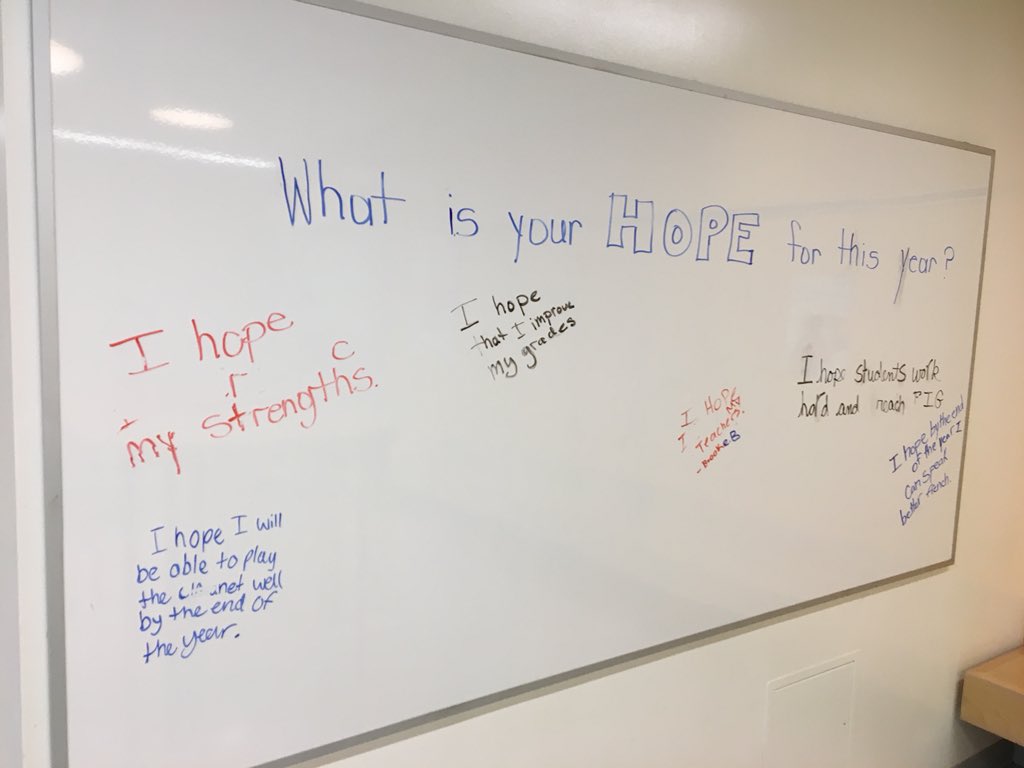 What is your HOPE for this year?
I hope
my strengths.
I hope
that I improve
my grades
I HOPE
I
Teachers.
-BROOKE B
I hope students work
hard and reach
I hope by the end
of the year I
can speak
better french.
I hope I will
be able to play
the well
by the end of
the year.